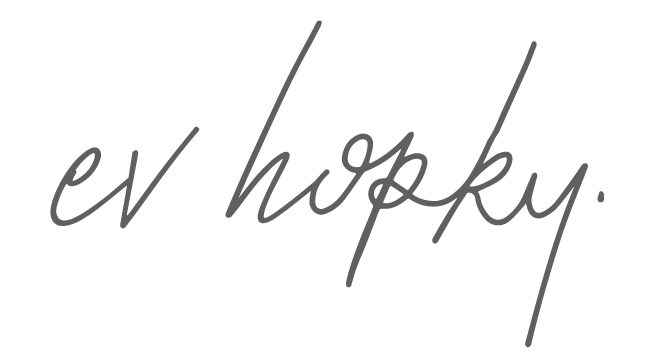 ev hopky.